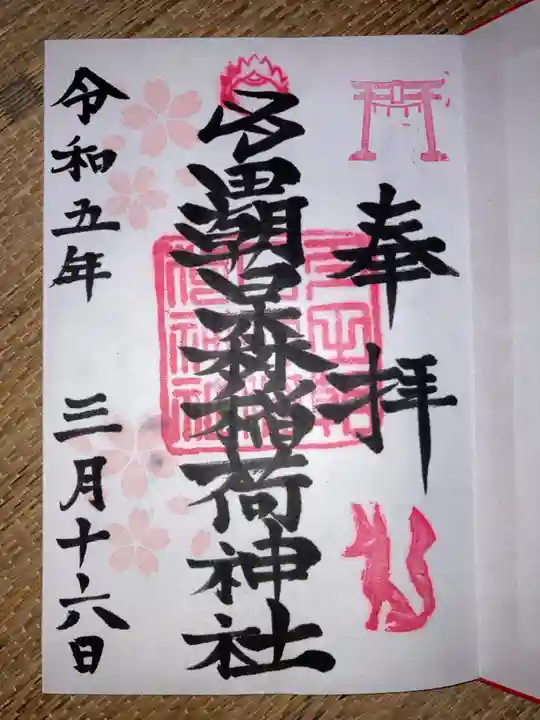 奉拝
多田朝日森稲荷神社
令和五年 三月十六日